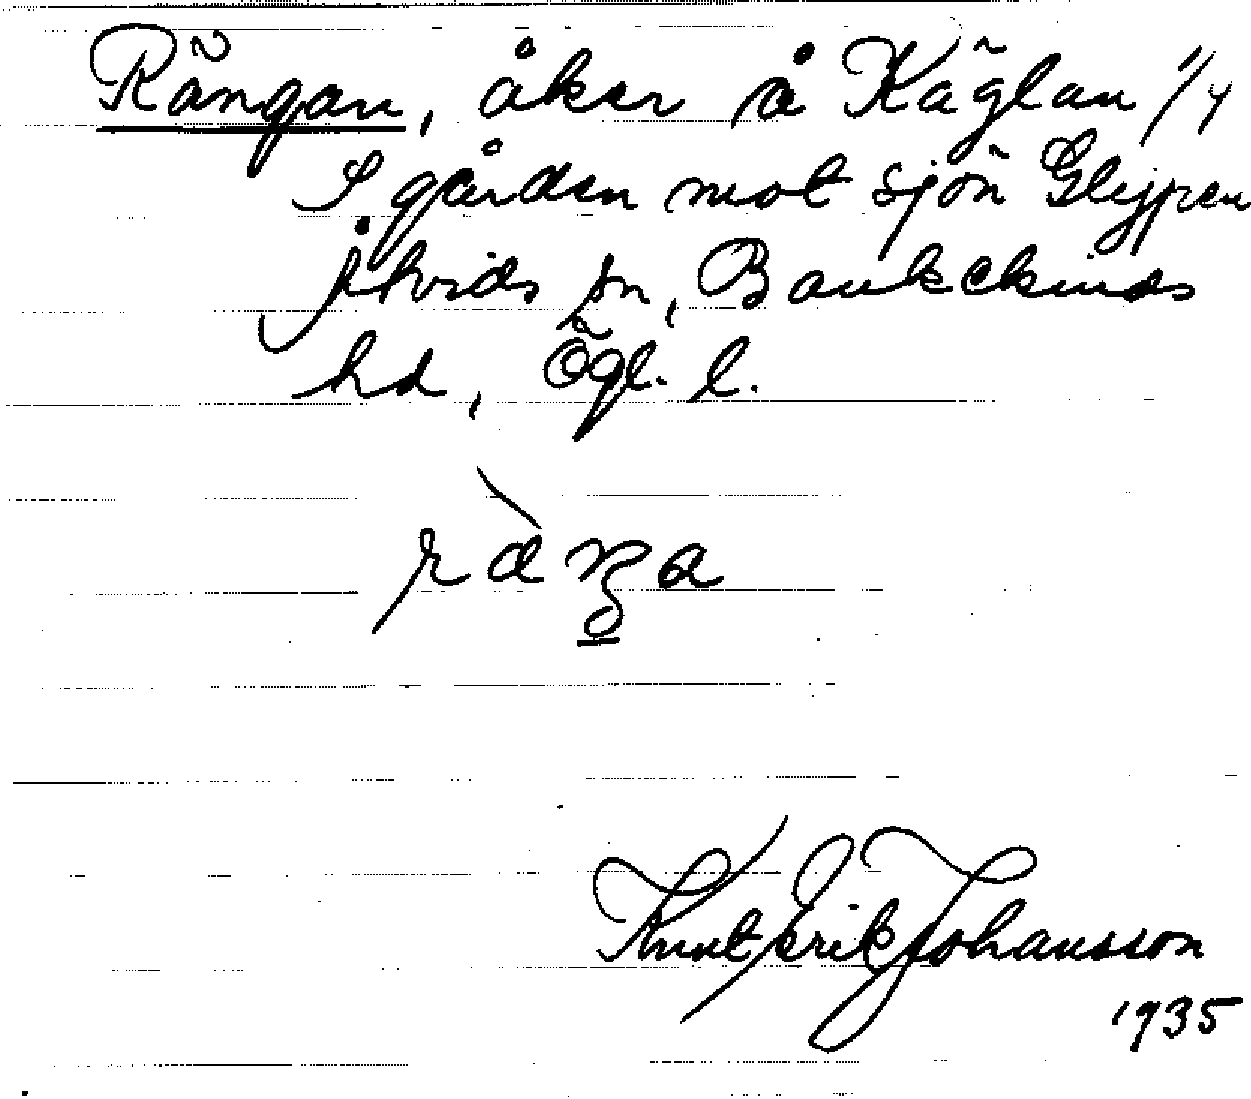 Rängan, åker å Käglan 1/4
I gården mot sjön Glypen
Åtvids sn, Bankekinds
hd, Ögl. l.
Knut Erik Johansson
1935